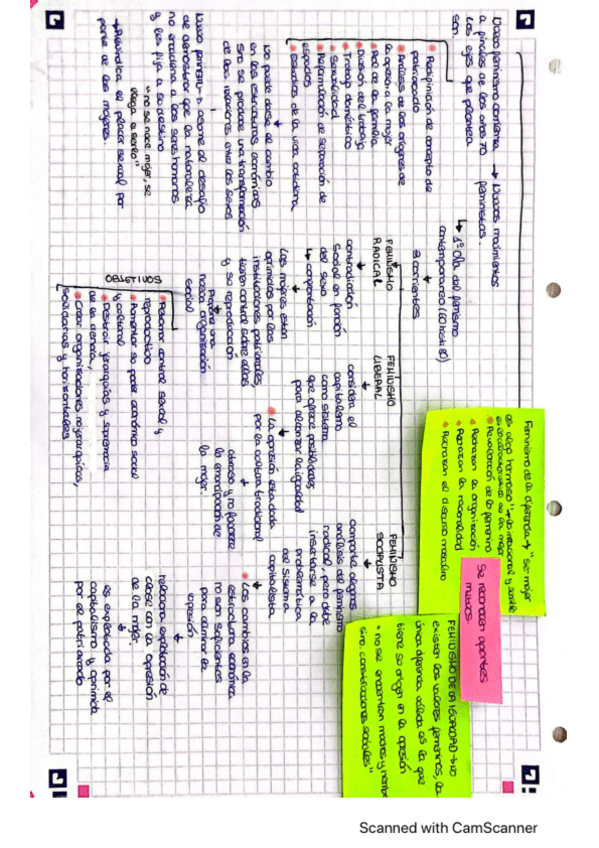 Nuevo feminismo comienza → Nuevos movimientos
a finales de los años 70 feministas.
Los ejes que plantea
son
↳ 1ª Ola del feminismo
contemporáneo
3 corrientes
• Redefinición de concepto de
patriarcado
• Análisis de los orígenes de
la opresión de la mujer
• Rol de la familia
• División del trabajo
• Trabajo doméstico
• Sexualidad
• Reformulación de separación de
espacios
• Estudios de la vida cotidiana
No puede darse el cambio
en las estructuras económicas
sino se produce una transformación
de las relaciones entre los sexos
Nuevo feminismo → asume el desafío
de demostrar que la naturaleza
no encadena a los seres humanos
y les fija su destino
"no se nace mujer, se
llega a serlo"
→ Reivindica el placer sexual por
parte de las mujeres.
FEMINISMO
RADICAL
contradicción
social en función
del sexo
↳ confrontación
Las mujeres están
oprimidas por las
instituciones patriarcales,
tienen control sobre ellas
y su reproducción
Propone una
nueva organización
social
OBJETIVOS
• Retomar control sexual y
reproductivo
• Aumentar su poder económico social
y cultural
• Destruir jerarquías y supremacía
de la ciencia,
• Crear organizaciones no jerárquicas,
solidarias y horizontales
FEMINISMO
LIBERAL
considera el
capitalismo
como sistema
que ofrece posibilidades
para alcanzar la igualdad
• La opresión esta dada
por la cultura tradicional
atraso y no favorece
la emancipación de
la mujer.
FEMINISMO
SOCIALISTA
comparte algunos
análisis del feminismo
radical, pero debe
insertarse a la
problemática
del sistema
capitalista
• Los cambios en la
estructura económica
no son suficientes
para eliminar la
opresión
relaciona explotación de
clase con la opresión
de la mujer.
es explotada por el
capitalismo y oprimida
por el patriarcado
Feminismo de la diferencia → "Ser mujer
es algo hermoso"
• Revalorización de lo femenino
• Rechazan la organización
• Rechazan la racionalidad
• Rechazan el discurso masculino
Se reconocen aportes
mutuos.
FEMINISMO DE LA IGUALDAD → no
existen los valores femeninos, la
única diferencia válida es la que
tiene su origen en la opresión
"no se encuentran mujeres y hombres
sino construcciones sociales"
Scanned with CamScanner